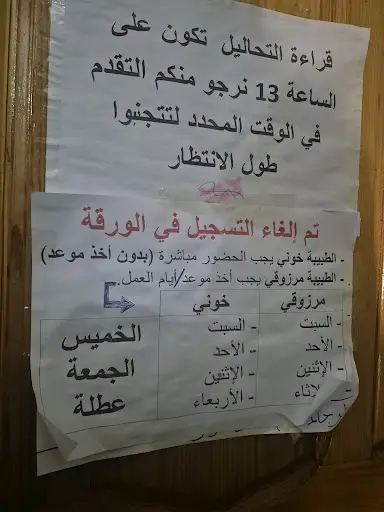 قراءة التحاليل تكون على
الساعة 13 نرجو منكم التقدم
في الوقت المحدد لتتجنبوا
طول الانتظار
تم إلغاء التسجيل في الورقة
- الطبيبة خوني يجب الحضور مباشرة (بدون أخذ موعد)
- الطبيبة مرزوقي يجب أخذ موعد/أيام العمل.
مرزوقي
- السبت
- الأحد
- الإثنين
خوني
- السبت
- الأحد
- الإثنين
- الأربعاء
الخميس
الجمعة
عطلة